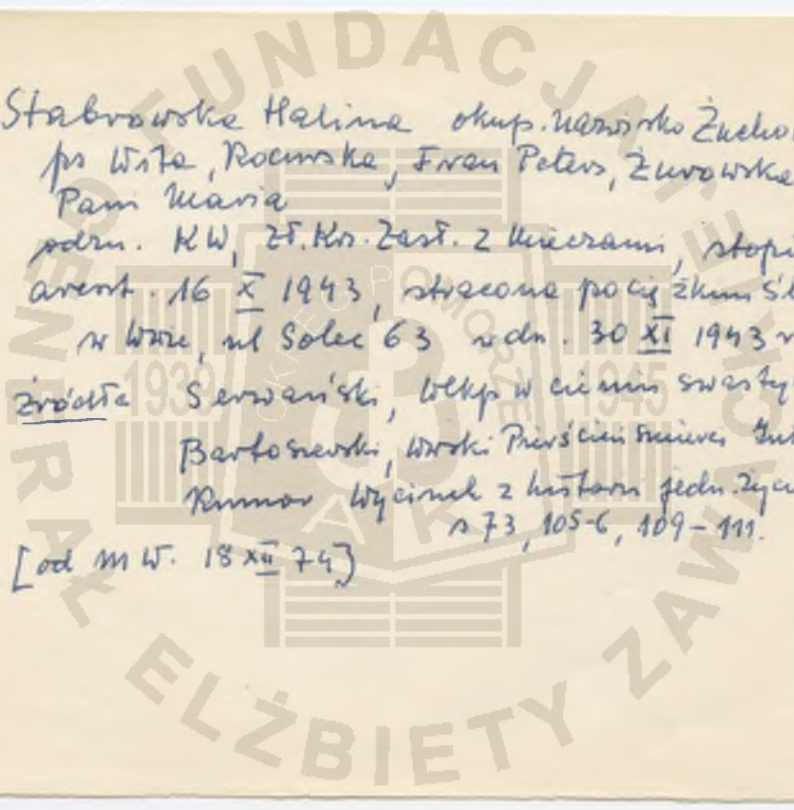 Stabrowska Halina okup. nazwisko Żucho
ps Wita, Rocwska, Frau Peters, Żurowska
Pani Maria
odzn. KW, Zł. Krz. Zasł. z Mieczami, stopi
areszt. 16 X 1943, stracona pociążkm śl
w Wwie, ul Solec 63 w dn. 30 XI 1943 r
Źródła Serwański, Wlkp w cieniu swasty
Bartoszewski, Wwski Pierścień Śmierci
Rumor Wycinek z historii jedn. życi
s 73, 105-6, 109-111.
[od M W. 18 XII 74]
FUNDACJA GENERAŁ ELŻBIETY ZAWACKIEJ
OKRĘG POMORZE
1939 1945
AK